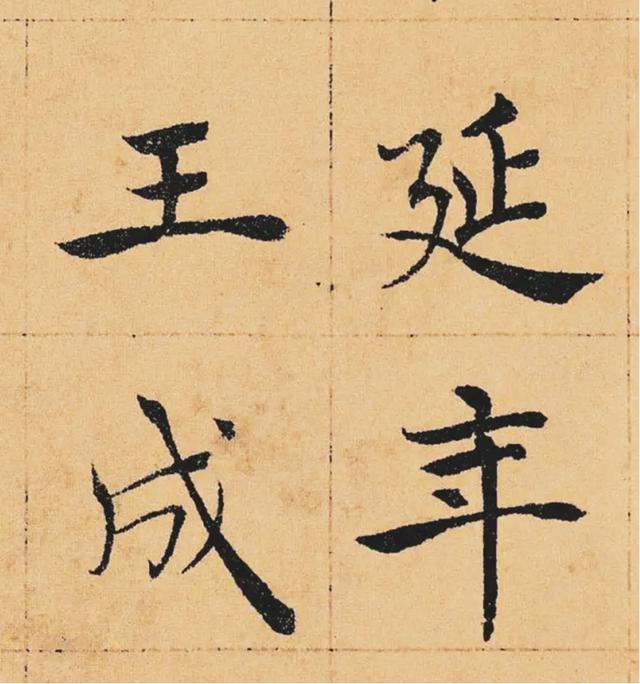 延年
王成